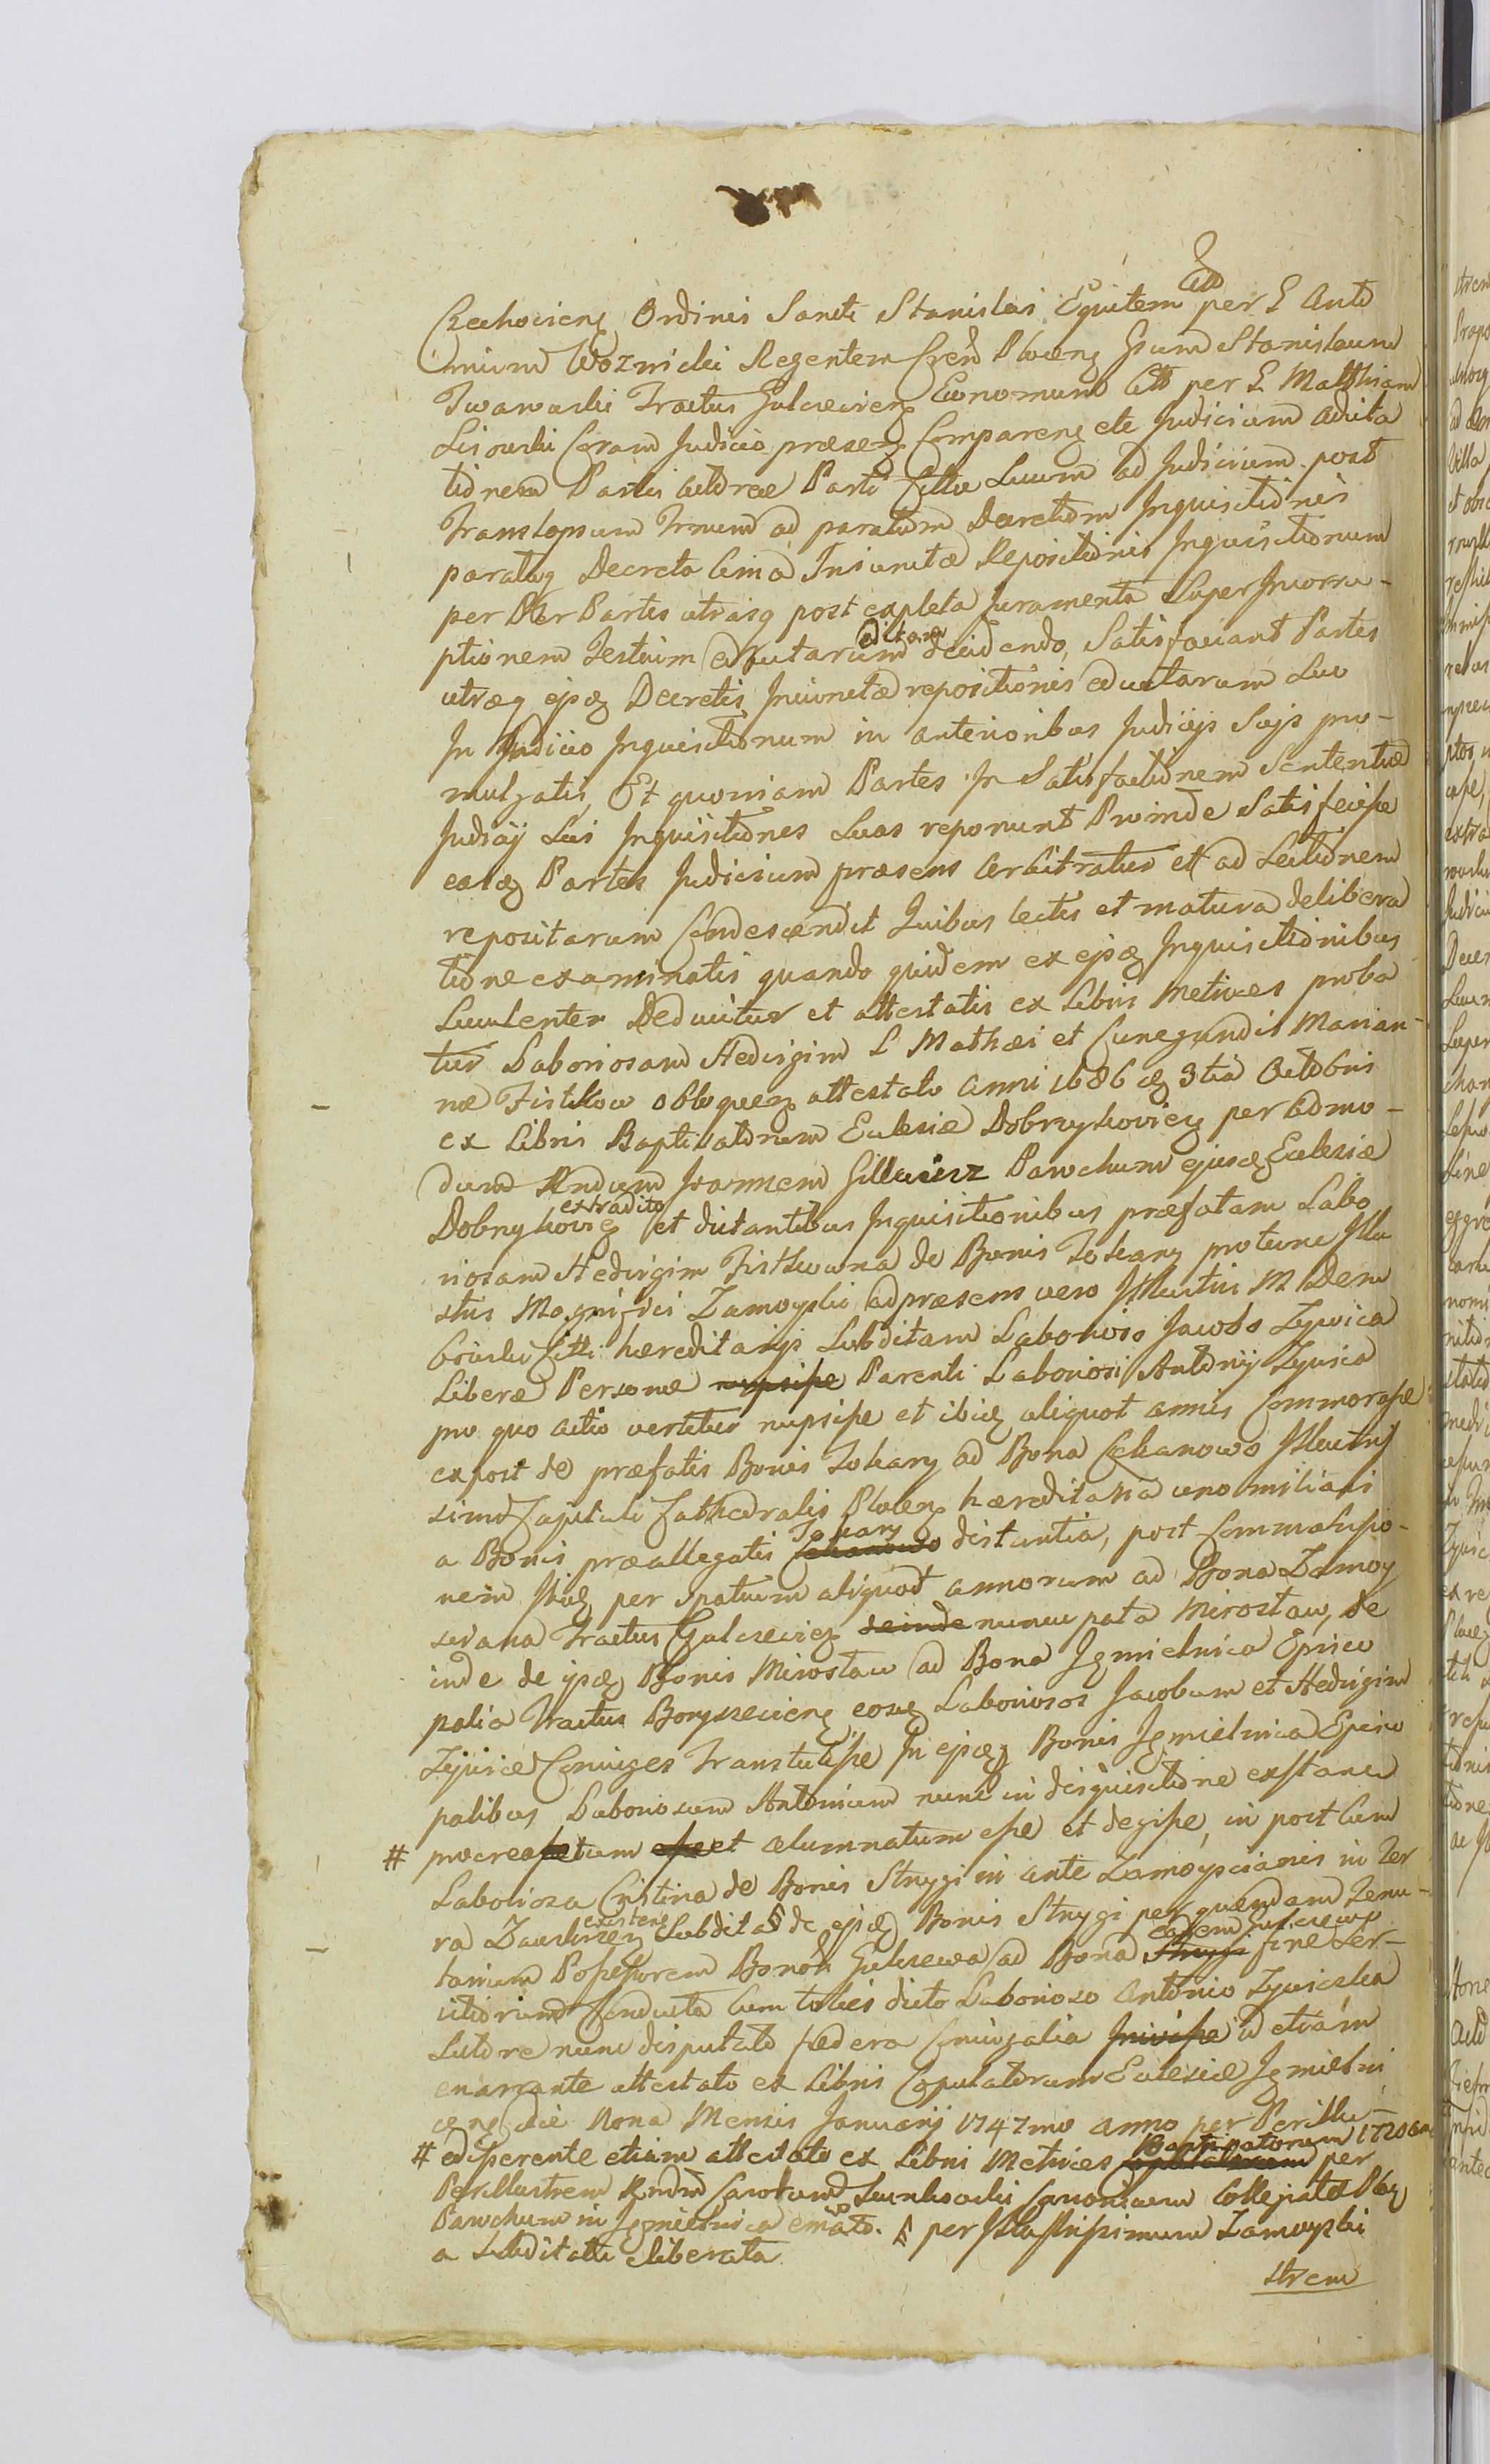 Ciechocieng Ordinis Sancti Stanislai Equitem Ctto per G Anto
nium Woznicki Regentem Cren Ploceng Gsum Stanislaum
Twarowski Tractus Gulczecieng Economum Ctto per G Matthiam
Lisowski Coram Judicio præseng Compareng ete Judicium adcita
tionem Partis actoreæ Parti Cittæ Suum ad Judicium post
Translapsum Trnum ad paratum Decretum Inquisitionis
paratas Decreto cum Iniunctæ Repositionis Inquisitionum
per Partes utrasq post expleta Juramenta Super Incorru-
ptionem Testium eductarum edictam deidendo, Satisfaciant Partes
utræq ejsq Decretis Iniunctæ repositionis eductarum Suo
In Judicio Inquisitionum in anterioribus Judicijs Sujs pro-
mulgatis, Et quoniam Partes In Satisfactionem Sententiæ
Judicij Sui Inquisitiones Suas reponunt Proinde Satisfecisse
easq Partes Judicium præsens arbitratur et ad Lectionem
repositarum Condescendit Quibus lectis et matura delibera
tione examinatis quando quidem ex ejsq Inquisitionibus
Luculenter Deducitur et attestatis ex Libris Metrices proba
tur Laboriosam Hedvigim L Mathæi et Cunegundis Marian-
næ Fistkow obloqueng attestato Anni 1686 3tia Octobris
ex Libris Baptisatorum Eclesiæ Dobrzykovieng per admo-
dum Rndum Joannem Gillewicz Parochum ejusq Eclesiæ
Dobrzykovieng extradito et dictantibus Inquisitionibus præfatam Labo
riosam Hedvigim Fistkowna de Bonis Tokary protunc Illu
stris Magnifici Zamoyski adpræsens vero Illustris M Dem
bowski Citti hæreditarijs Subditam Laborioso Jacobo Zywica
Liberæ Personæ nupsisse Parenti Laboriosi Antonij Zywica
pro quo actio vertitur nupsisse et ibidq aliquot annis Commorasse
expost de præfatis Bonis Tokary ad Bona Cekanowo Illustris
simi Capituli Cathedralis Ploceng hæreditaria uno miliari
a Bonis præallegatis Cekanowo Tokary distantia, post Commoratio-
nem Ibidq per spatium aliquod annorum ad Bona Zamoy
sciana Tractus Gulczecieng deinde nuncupata Mirosław, de
inde de ijsq Bonis Mirosław ad Bona Jgmielnica Episco
palia Tractus Boryszecieng eosq Laboriosos Jacobum et Hedvigim
Zywice Coniuges Transtulisse In ejsq Bonis Jgmielnica Episco
palibus Laboriosum Antonium nunc in disquisitione exstanem
# procreatum esse et alumnatum esse et degisse, in post Cum
Laboriosa Cristina de Bonis Stnygi in ante Zamoyscianis in Ter
ra Zawkrzeng existeng Subdita § de ejsq Bonis Stnygi per quemdam Tenu-
tarium Possessorem Bonor Gulczewa ad Bona Stnygi eadem Gulczewo fine Ser-
vitiorum Conducta Cum toties dicto Laborioso Antonio Zywiczka
Sutore nunc disputato fædera Coniugalia Inivisse id etiam
enarrante attestato ex Libris Copulatorum Eclesiæ Jgmielni
ceng die Nona Mensis Januarij 1747mo Anno per Perillu-
# edisserente etiam attestato ex Libris Metrices Copulatorum Baptisatorum 1720 an per
Perillustrem Rndm Carolum Sunkowski Canonicum Collegiatæ Ploc
Parochum in Jgmielnica emato. § per Illustrissimum Zamoyski
a Subditate eliberata
strem